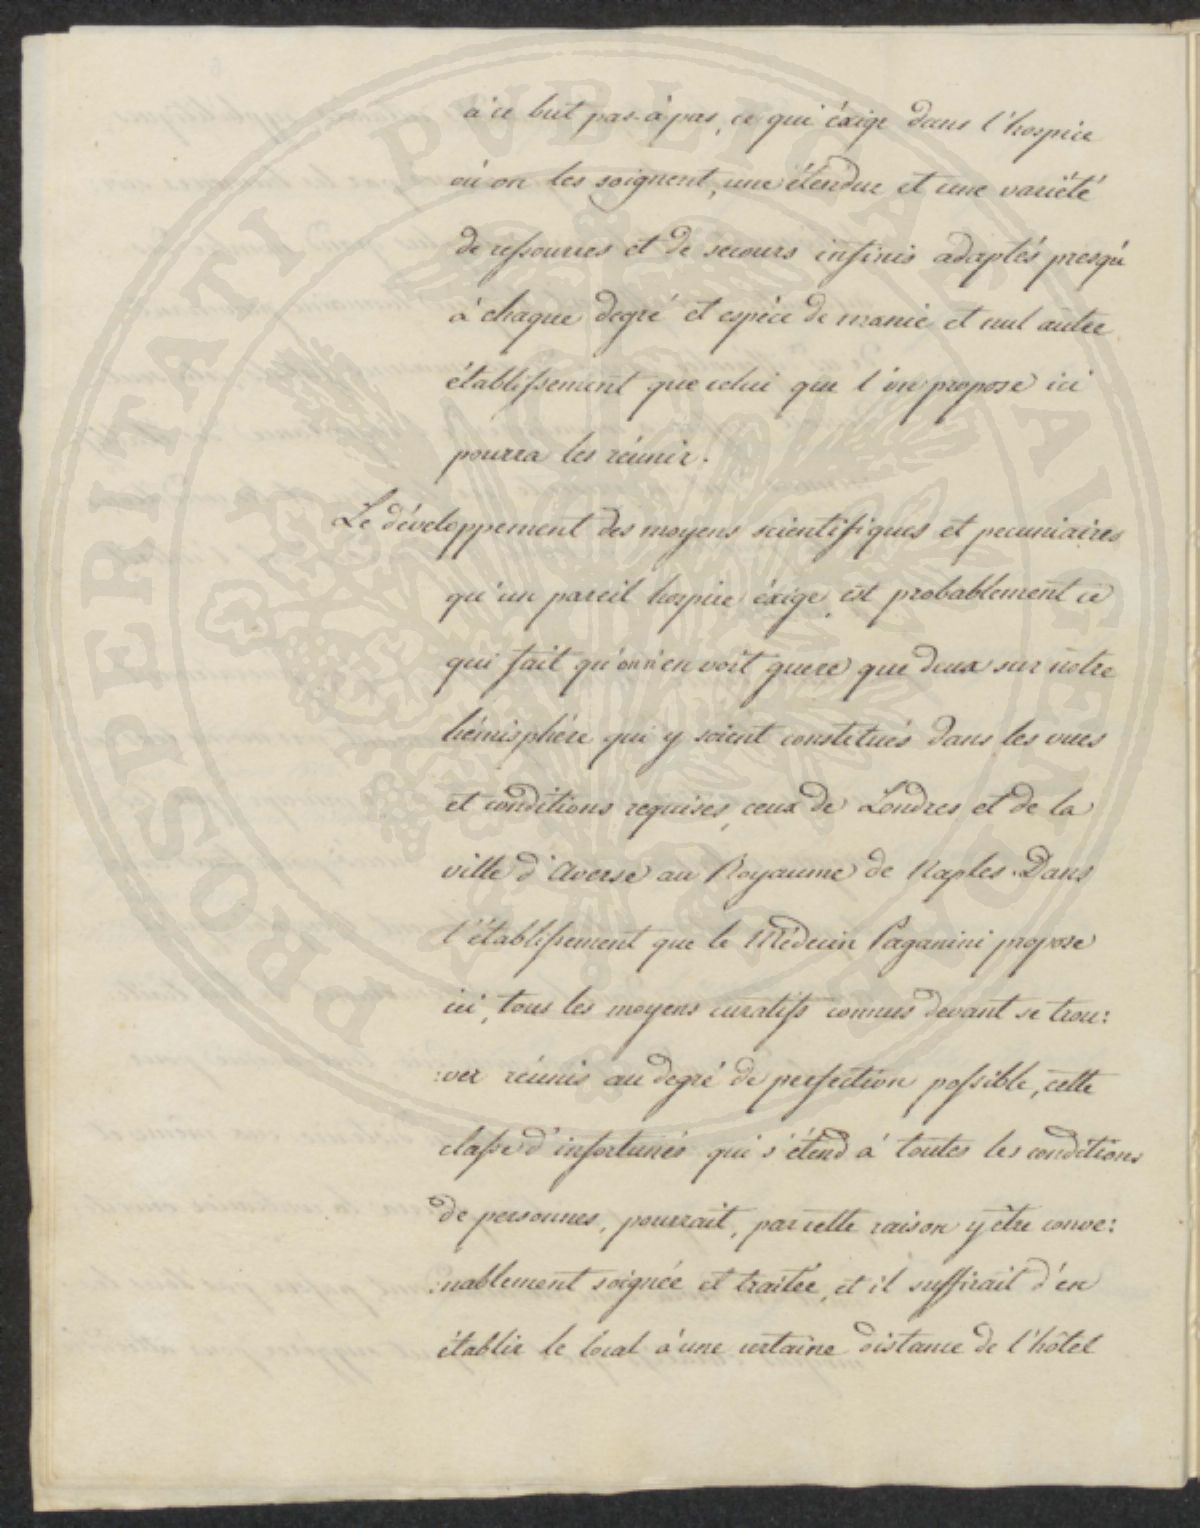 à ce but pas-à pas, ce qui éxige dans l'hospice
où on les soignent, une étendue et une variété
de ressources et de secours infinis adaptés presqu'
à chaque degré et espèce de manie et nul autre
établissement que celui que l'on propose ici
pourra les réunir.
Le développement des moyens scientifiques et pecuniaires
qu'un pareil hospice éxige, est probablement ce
qui fait qu'on n'en voit guere que deux sur notre
hémisphére qui y soient constitués dans les vues
et conditions requises, ceux de Londres et de la
ville d'Averse au Royaume de Naples. Dans
l'établissement que le Médecin Paganini propose
ici, tous les moyens curatifs connus devant se trou:
:ver réunis au degré de perfection possible, cette
classe d'infortunés qui s'étend à toutes les conditions
de personnes, pourrait, par cette raison y être conve:
:nablement soignée et traitée, et il suffirait d'en
établir le local à une certaine distance de l'hôtel
PROSPERITATI PVBLICAE AVGENDAE